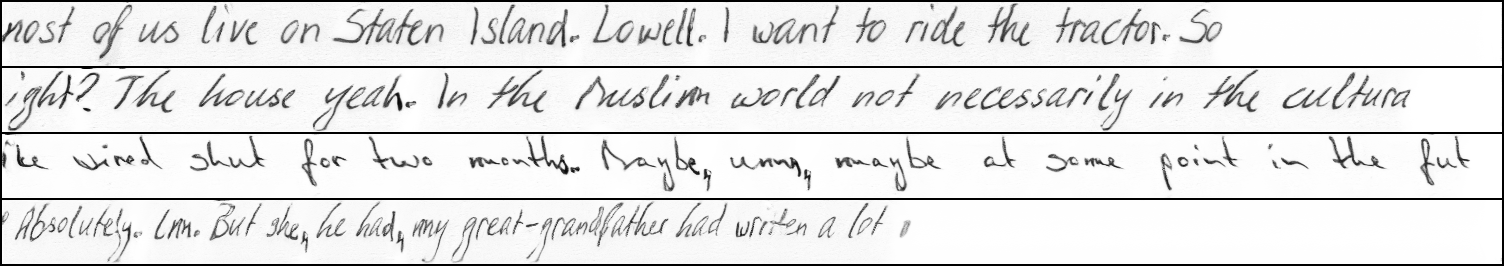 most of us live on Staten Island. Lowell. I want to ride the tractor. So
ight? The house yeah. In the Muslim world not necessarily in the cultura
ike wired shut for two months. Maybe, umm, maybe at some point in the fut
Absolutely. Umm. But she, he had, my great-grandfather had written a lot